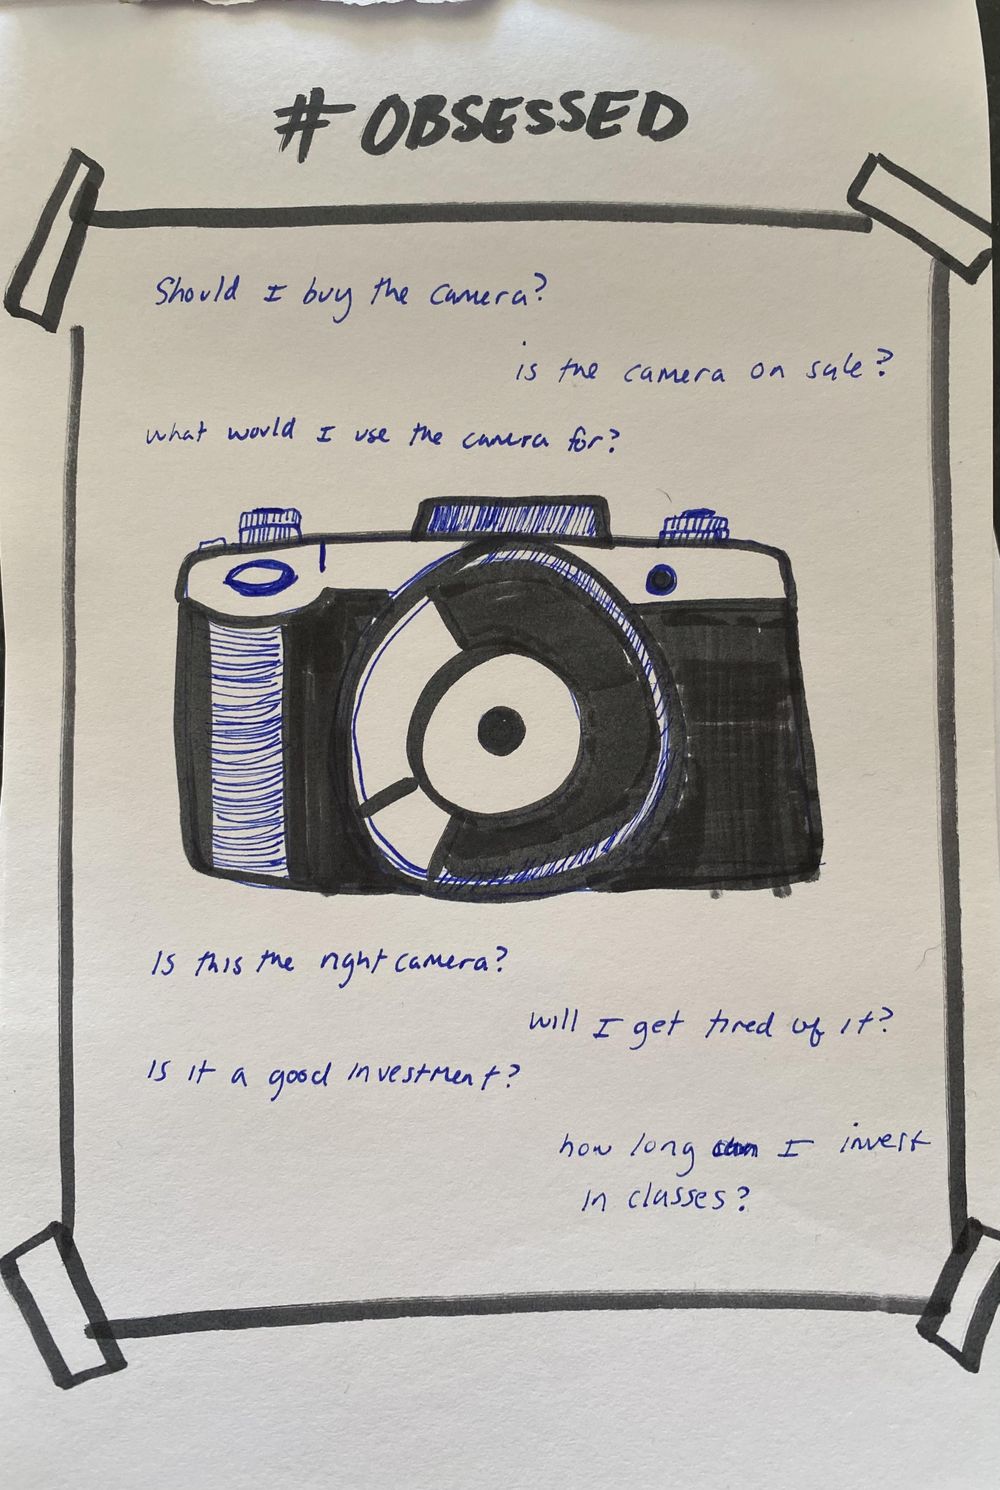 # OBSESSED
Should I buy the camera?
is the camera on sale?
what would I use the camera for?
Is this the right camera?
will I get tired of it?
Is it a good investment?
how long I invest
in classes?